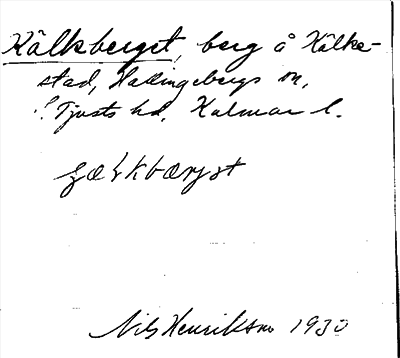 Kälkberget, berg å Kälke-
stad, Hallingebergs sn,
S. Tjusts hd, Kalmar l.
Nils Henriksson 1930